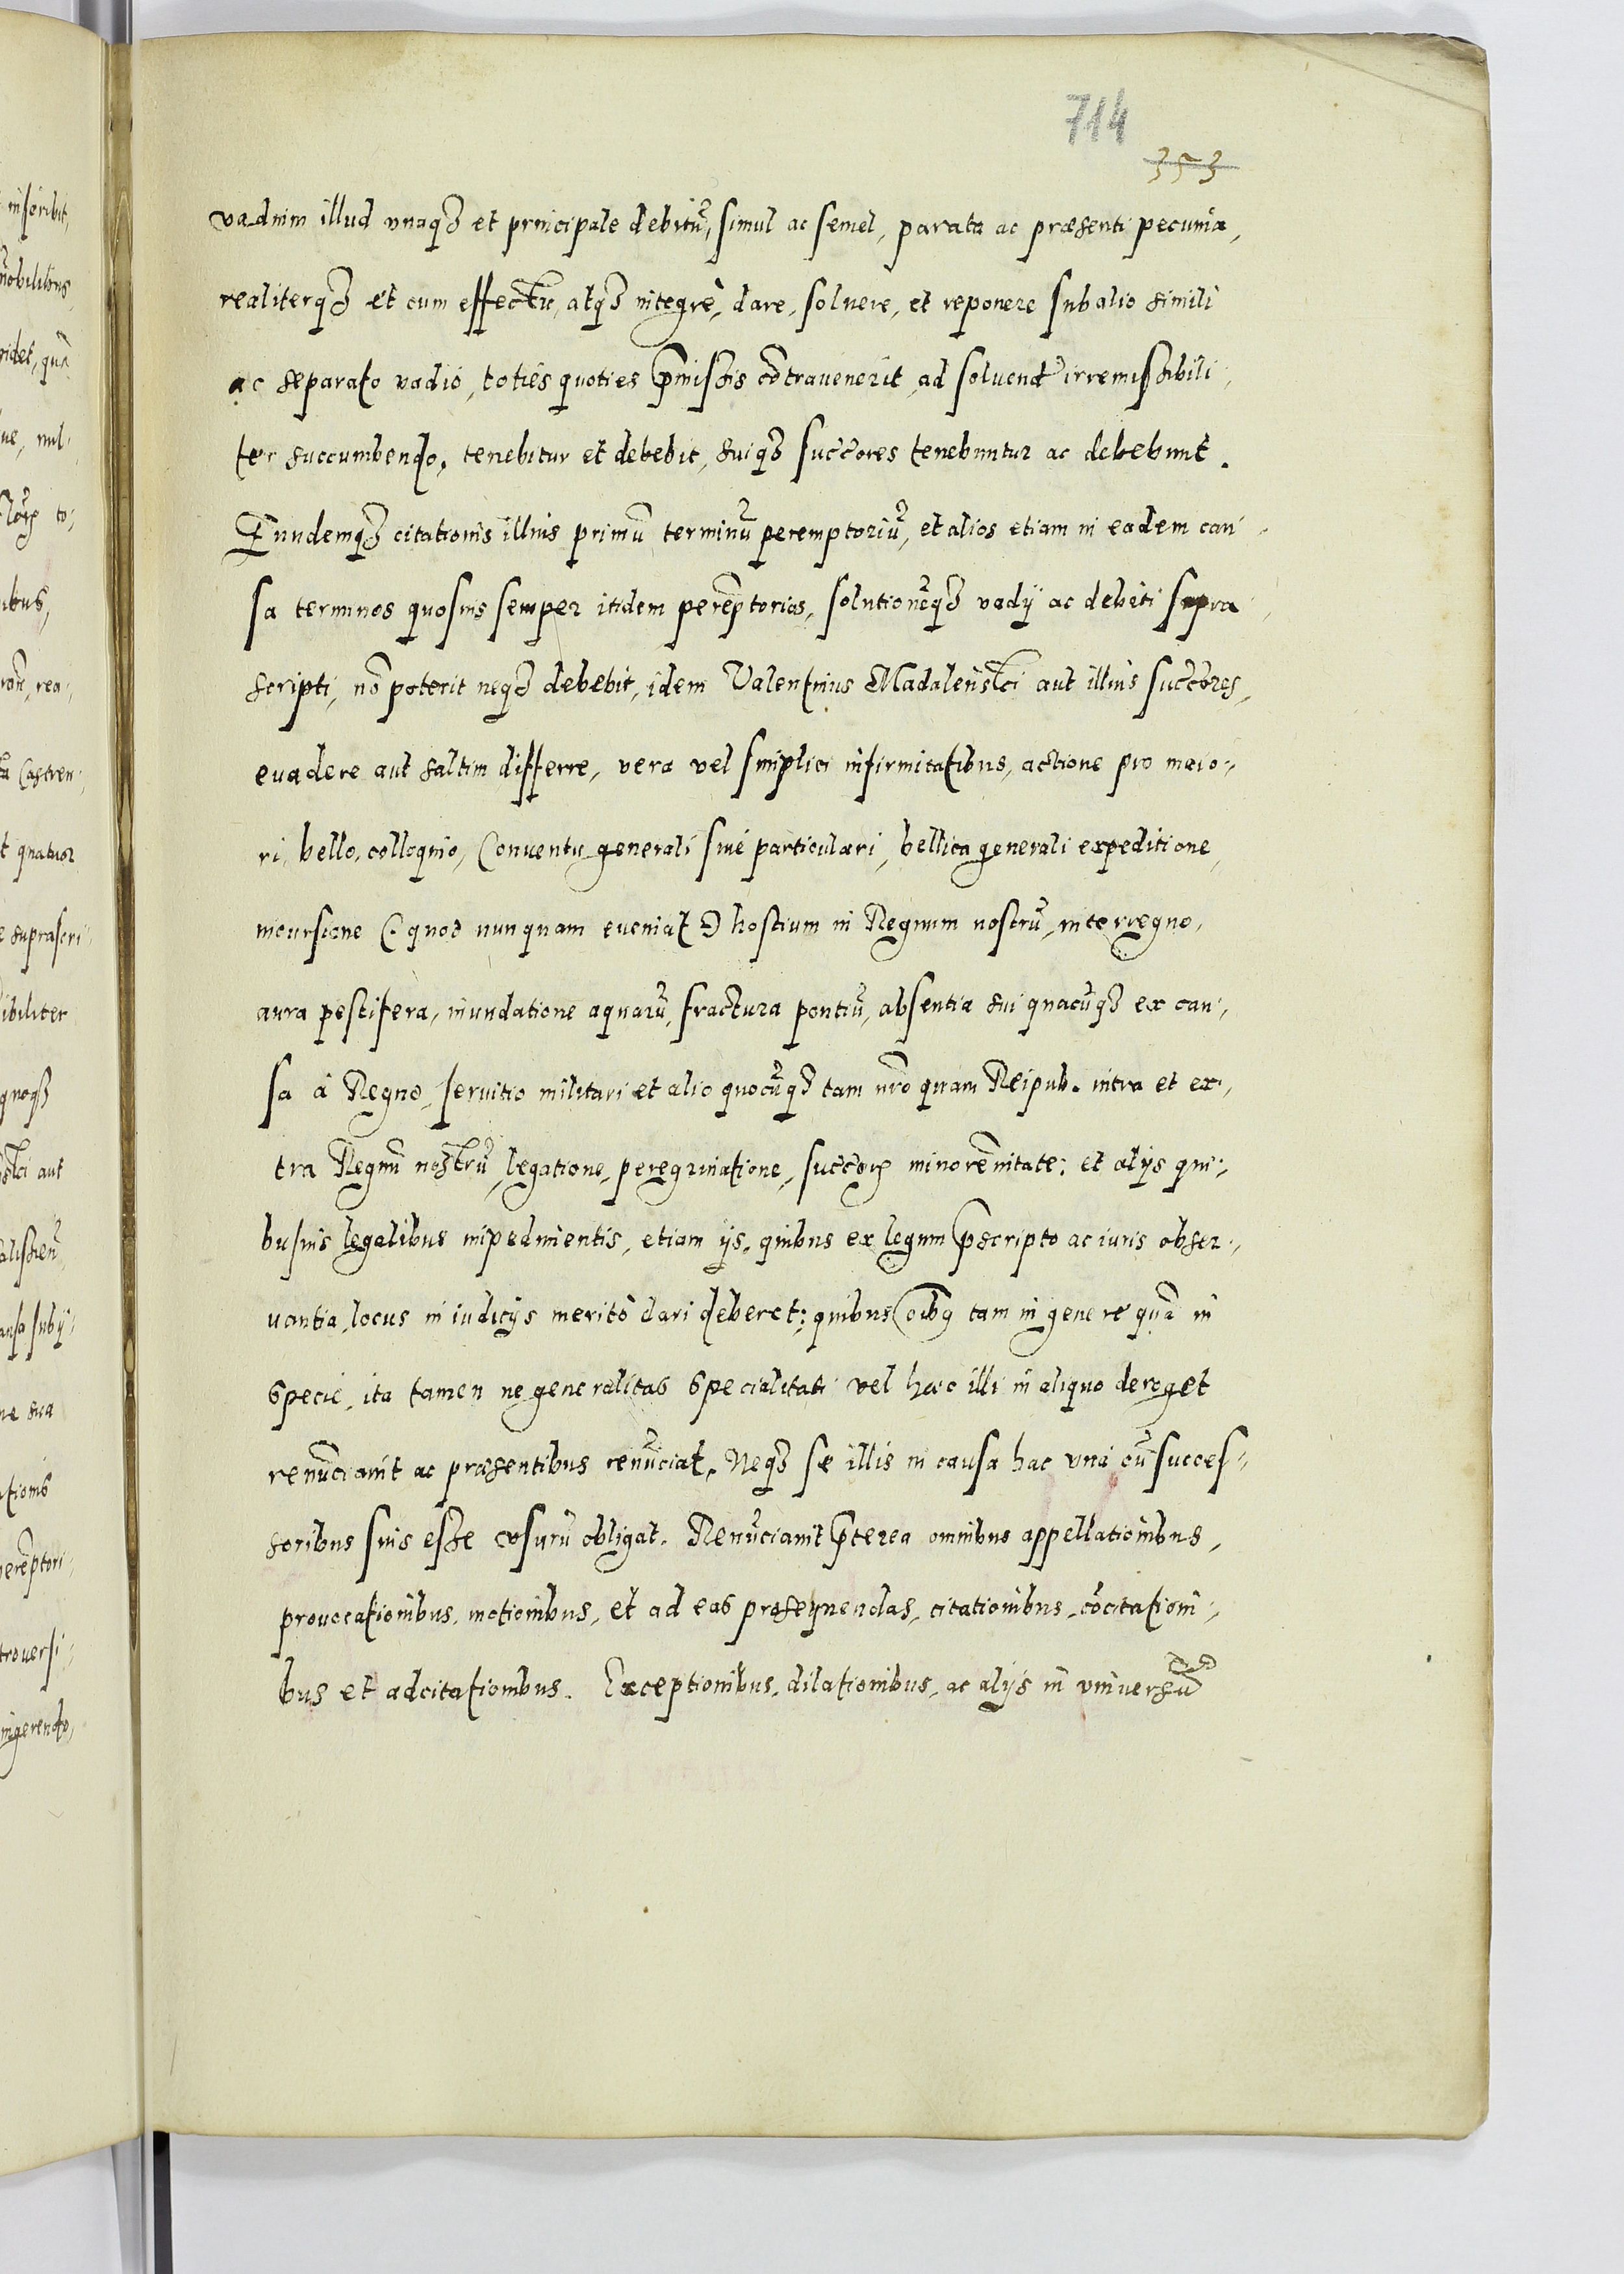 714
353
vadium illud unaqꝫ et principale debitū, simul ac semel, parata ac præsenti pecunia,
realiterqꝫ et cum effectu, atqꝫ integrè, dare, soluere, et reponere sub alio simili
ac separato vadio, toties quoties p̄missis cōtrauenerit, ad soluend irremissibili,
ter succumbendo, tenebitur et debebit, suiqꝫ succōres tenebuntur ac debebunt.
Eundemqꝫ citationis illius primū terminū peremptoriū, et alios etiam in eadem cau
sa terminos quosuis semper itidem perēptorios, solutionēqꝫ vadij ac debiti supra
scripti, nō poterit neqꝫ debebit, idem Valentinus Madalenski aut illius succōres,
euadere aut saltim differre, vera vel simplici infirmitatibus, actione pro maio-
ri, bello, colloquio, Conuentu generali siue particulari, bellica generali expeditione,
incursione (: quod nunquam eueniat :) hostium in Regnum nostrū, interregno,
aura pestifera, inundatione aquarū, fractura pontiū, absentia sui quacūqꝫ ex cau,
sa à Regno, seruitio militari et alio quocūqꝫ tam nr̄o quam Reipub. intra et ex,
tra Regnū nostrū, legatione, peregrinatione, succōꝝ minorēnitate; et alijs qui,
busuis legalibus impedimentis, etiam ijs, quibus ex legum p̄scripto ac iuris obser,
uantia, locus in iudicijs meritò dari deberet; quibus oībꝫ tam in genere quā in
specie, ita tamen ne generalitas specialitati vel hæc illi in aliquo deroget
renūciauit ac præsentibus renūciat. Neqꝫ se illis in causa hac unà cū succes-
soribus suis esse vsurū obligat. Renūciauit p̄terea omnibus appellationibus,
prouocationibus, motionibus, et ad eas prosequendas, citationibus, cōcitationi-
bus et adcitationibus. Exceptionibus, dilationibus, ac alijs in vniuersū